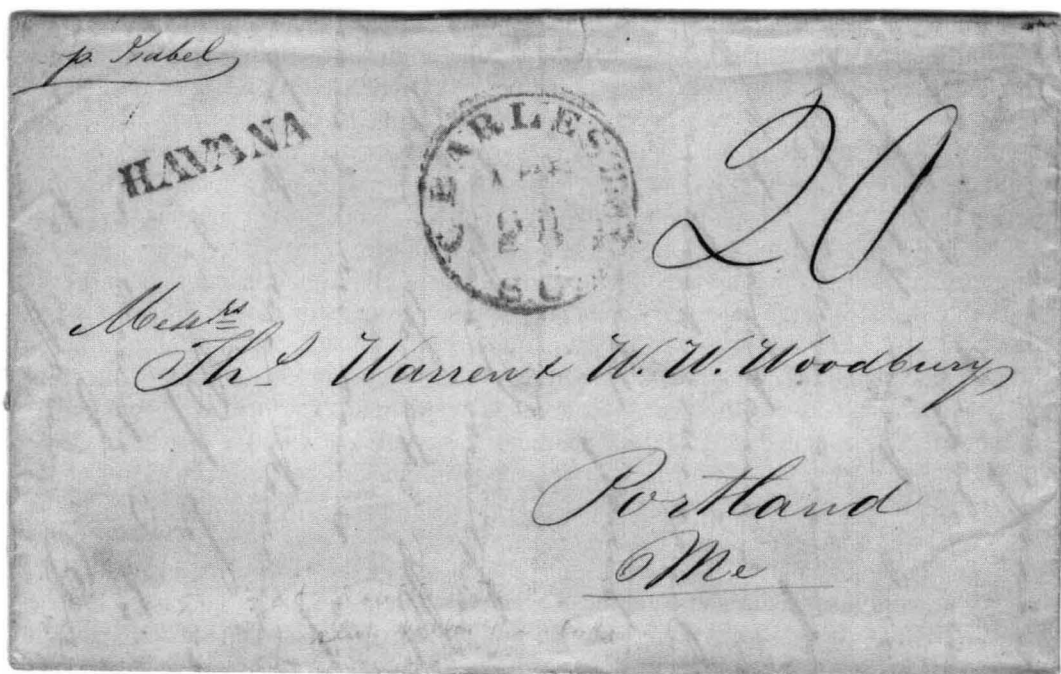 p. Isabel
HAVANA
CHARLESTON
28
S.C.
20
Messrs
Ths Warren & W. W. Woodbury
Portland
Me